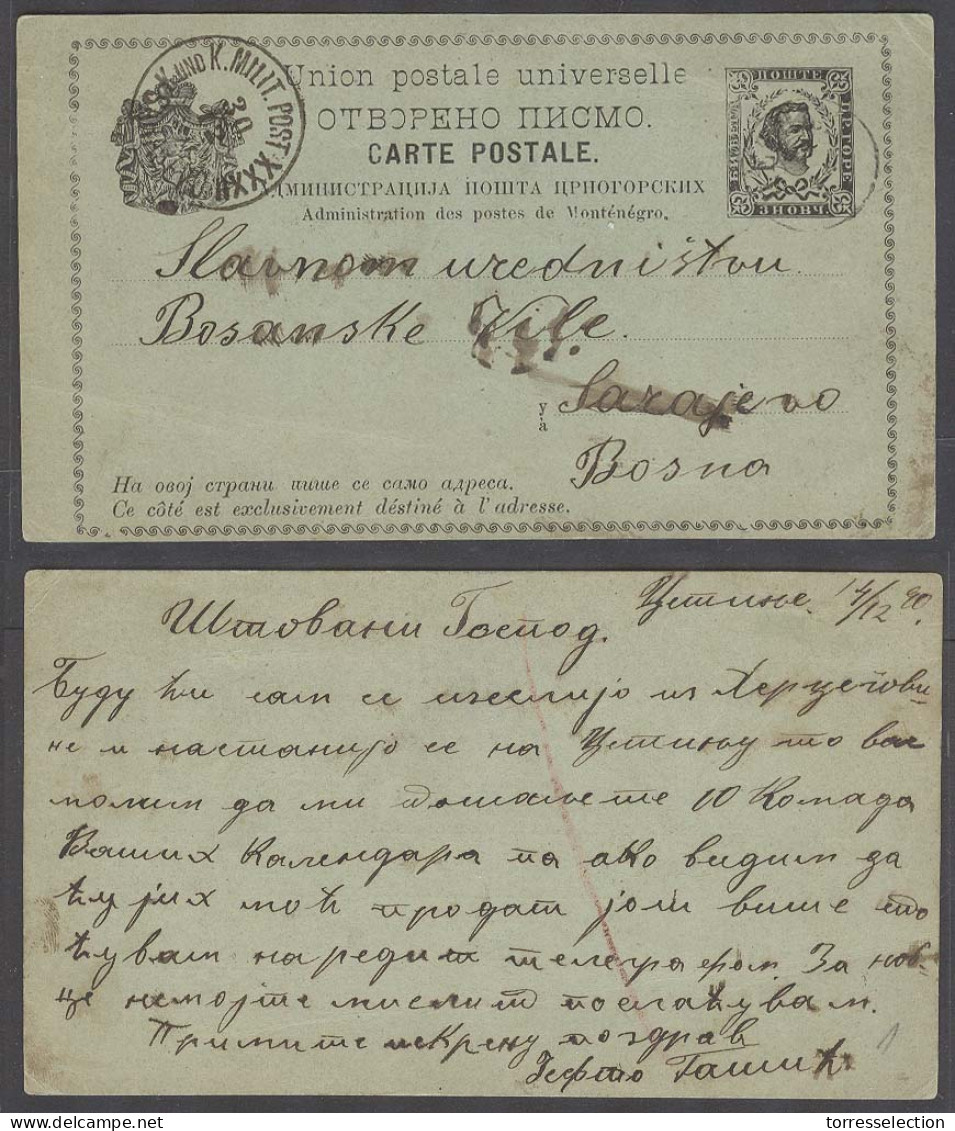 Union postale universelle
ОТВОРЕНО ПИСМО.
CARTE POSTALE.
АДМИНИСТРАЦИЈА ПОШТА ЦРНОГОРСКИХ
Administration des postes de Monténégro.
K. UND K. MILIT. POST XXXVII
ПОШТЕ
ЦР. ГОРЕ
НОВЧ
Slavnom uredništvu
Bosanske Vile.
у
à
Sarajevo
Bosna
На овој страни пише се само адреса.
Ce côté est exclusivement déstiné à l'adresse.
Цетиње. 14/12 90.
Штовани Господ.
Будући сам се изселијо из Херцегови-
не и настанијо се на Цетињу то вас
молим да ми пошаљете 10 Комада
Ваших Календара па ако видим да
ћу јих моћ продат још више то
ћувам наредит телеграфом. За нов-
це немојте мислит послаћувам.
Примите искрену поздрав
Гашић
1
torresselection